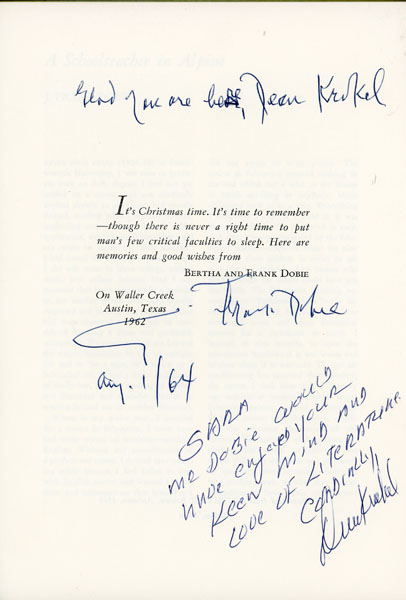 A Schoolteacher in Alpine
Glad you are here, Dean Krakel
It's Christmas time. It's time to remember
—though there is never a right time to put
man's few critical faculties to sleep. Here are
memories and good wishes from
BERTHA AND FRANK DOBIE
On Waller Creek
Austin, Texas
1962
Frank Dobie
Aug. 1/64
SARA
MR DOBIE WOULD
HAVE ENJOYED YOUR
KEEN MIND AND
LOVE OF LITERATURE
CORDIALLY
Dean Krakel